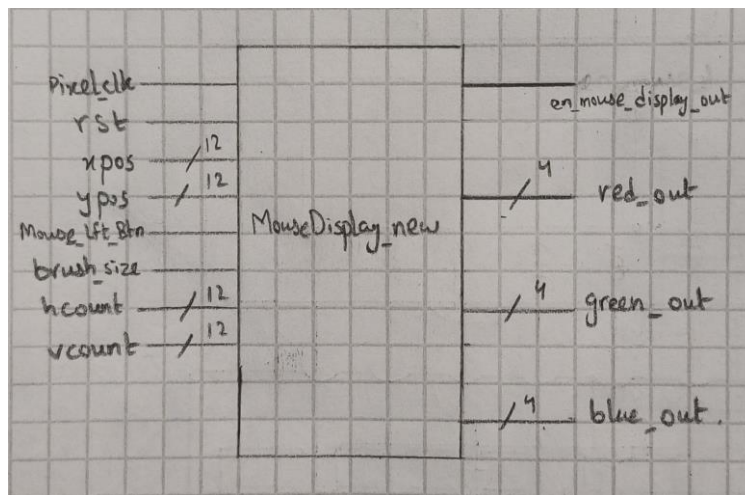 Pixel_clk
rst
xpos 12
ypos 12
Mouse_Lft_Btn
brush_size
hcount 12
vcount 12
MouseDisplay_new
en_mouse_display_out
4 red_out
4 green_out
4 blue_out.